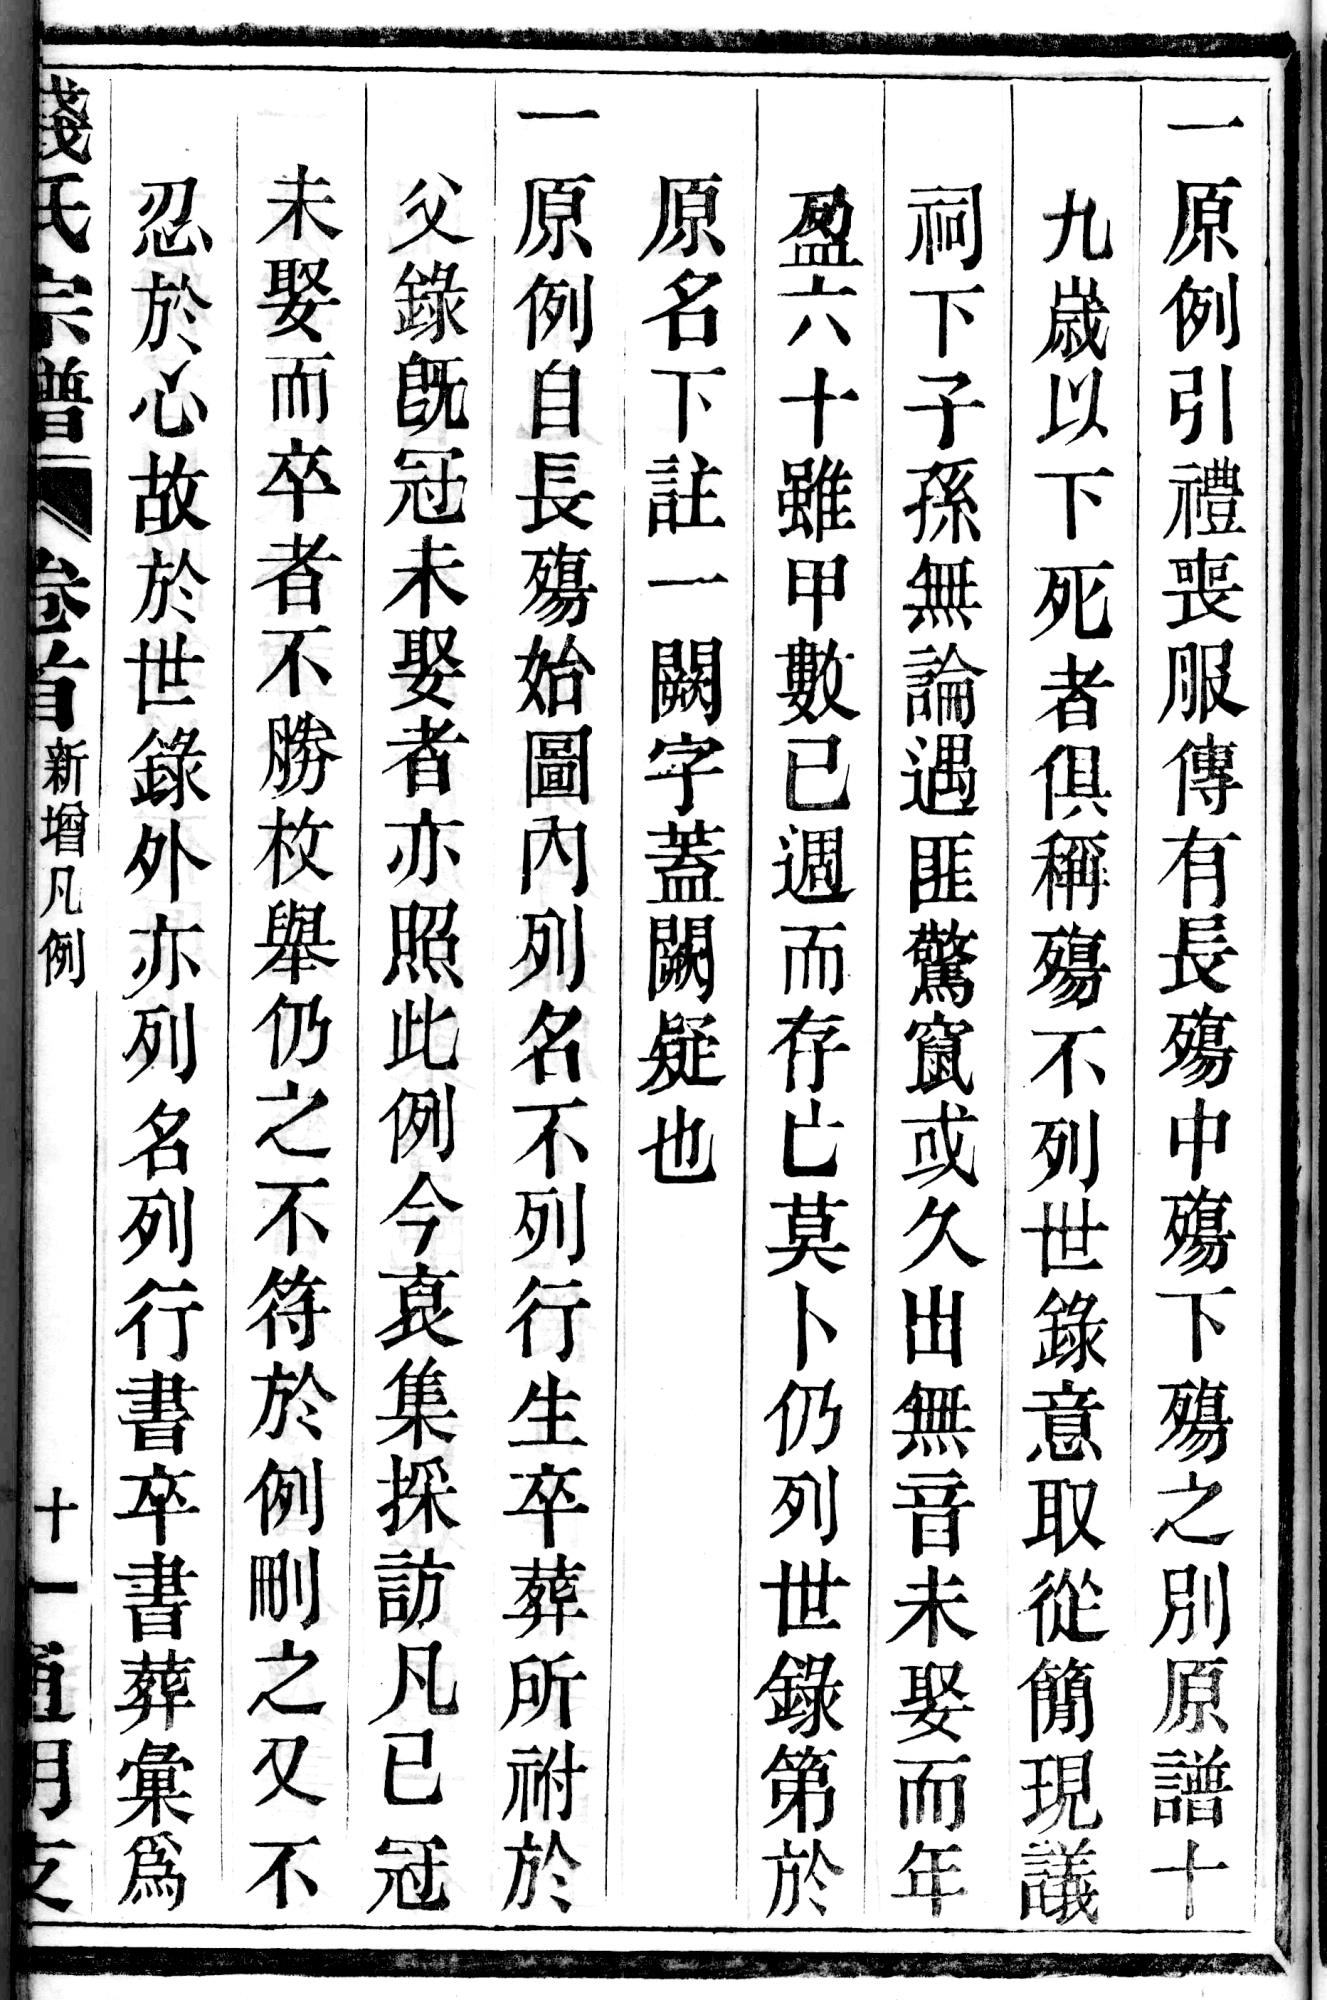 一原例引禮喪服傳有長殤中殤下殤之別原譜十
九歲以下死者俱稱殤不列世錄意取從簡現議
祠下子孫無論遇匪驚竄或久出無音未娶而年
盈六十雖甲數已週而存亡莫卜仍列世錄第於
原名下註一闕字蓋闕疑也
一原例自長殤始圖內列名不列行生卒葬所祔於
父錄旣冠未娶者亦照此例今裒集採訪凡已冠
未娶而卒者不勝枚舉仍之不符於例刪之又不
忍於心故於世錄外亦列名列行書卒書葬彙爲
錢氏宗譜 卷首 新增凡例 十一 通明支